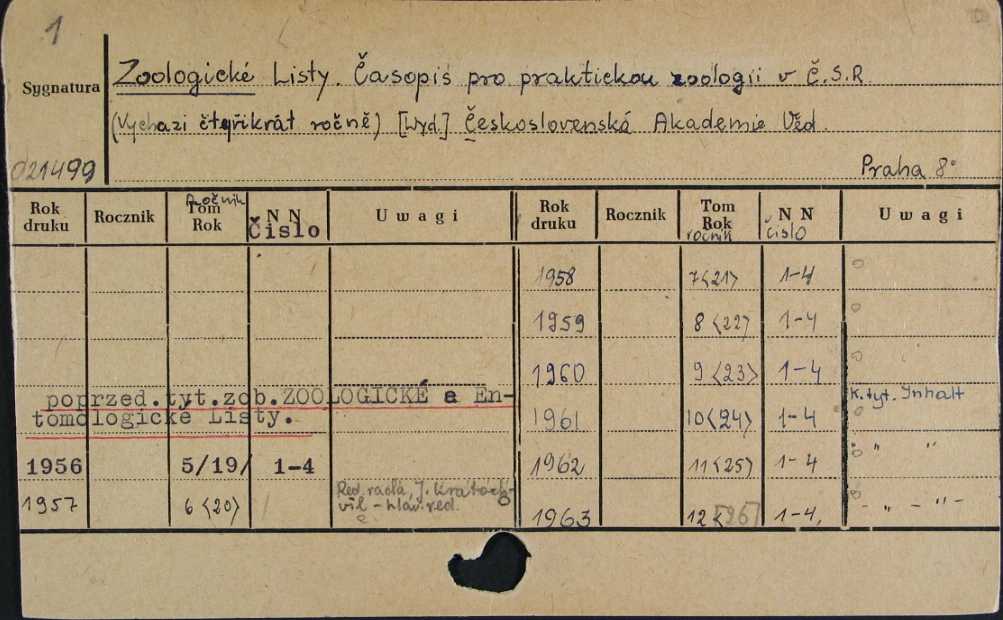 1
Sygnatura
021499
Zoologické Listy. Časopis pro praktickou zoologii v Č.S.R.
(Vychazi čtyřikrát ročně) [Wyd.] Československá Akademie Věd.
Praha 8°
Rok druku Rocznik ročnik Tom Rok N N Čislo Uwagi Rok druku Rocznik Tom Rok ročnik N N čislo Uwagi
1958 7<21> 1-4
1959 8<22> 1-4
1960 9<23> 1-4
poprzed.tyt.zob.ZOOLOGICKÉ a En-
tomologické Listy.
1961 10<24> 1-4 K.tyt. Inhalt
1956 5/19/ 1-4
1962 11<25> 1-4 " "
1957 6<20> Red. rada, J. Kratoch-
vil - hlav. red.
1963 12<26> 1-4. - " - " -